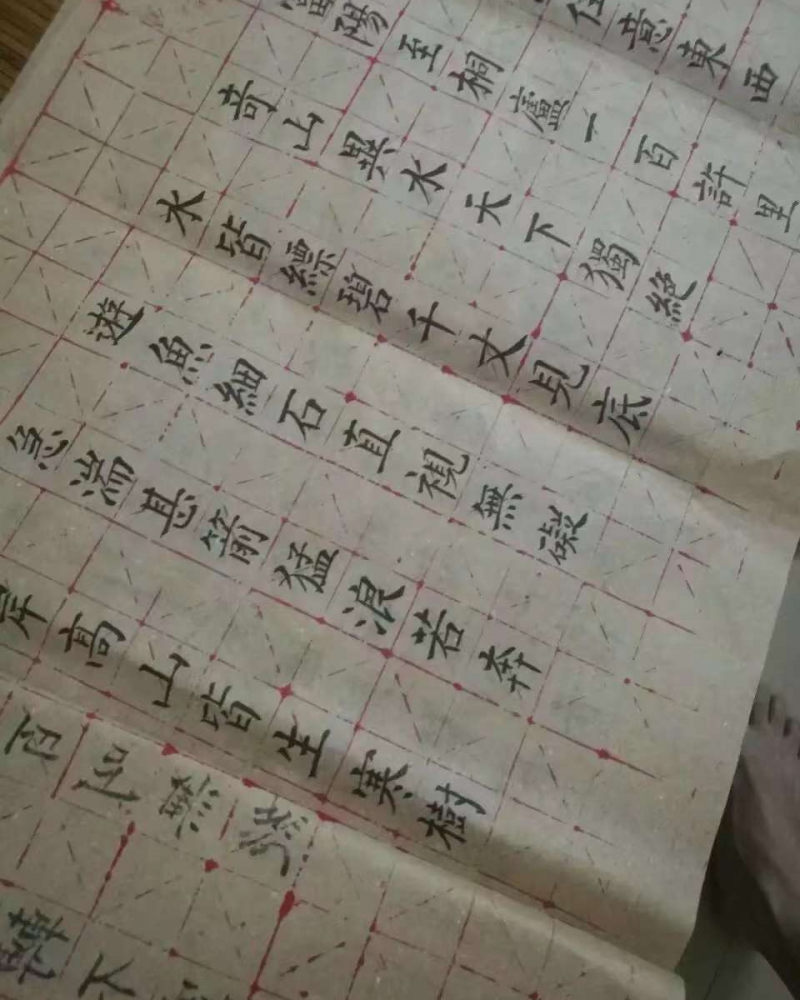 任意東西
富陽至桐廬一百許里
奇山異水天下獨絕
水皆縹碧千丈見底
遊魚細石直視無礙
急湍甚箭猛浪若奔
岸高山皆生寒樹
百無絕
轉不